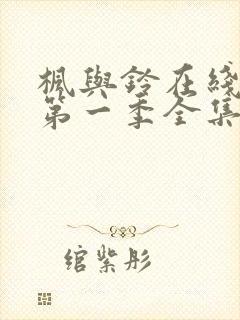 楓與鈴在綫
第一季全集
綰紫彤